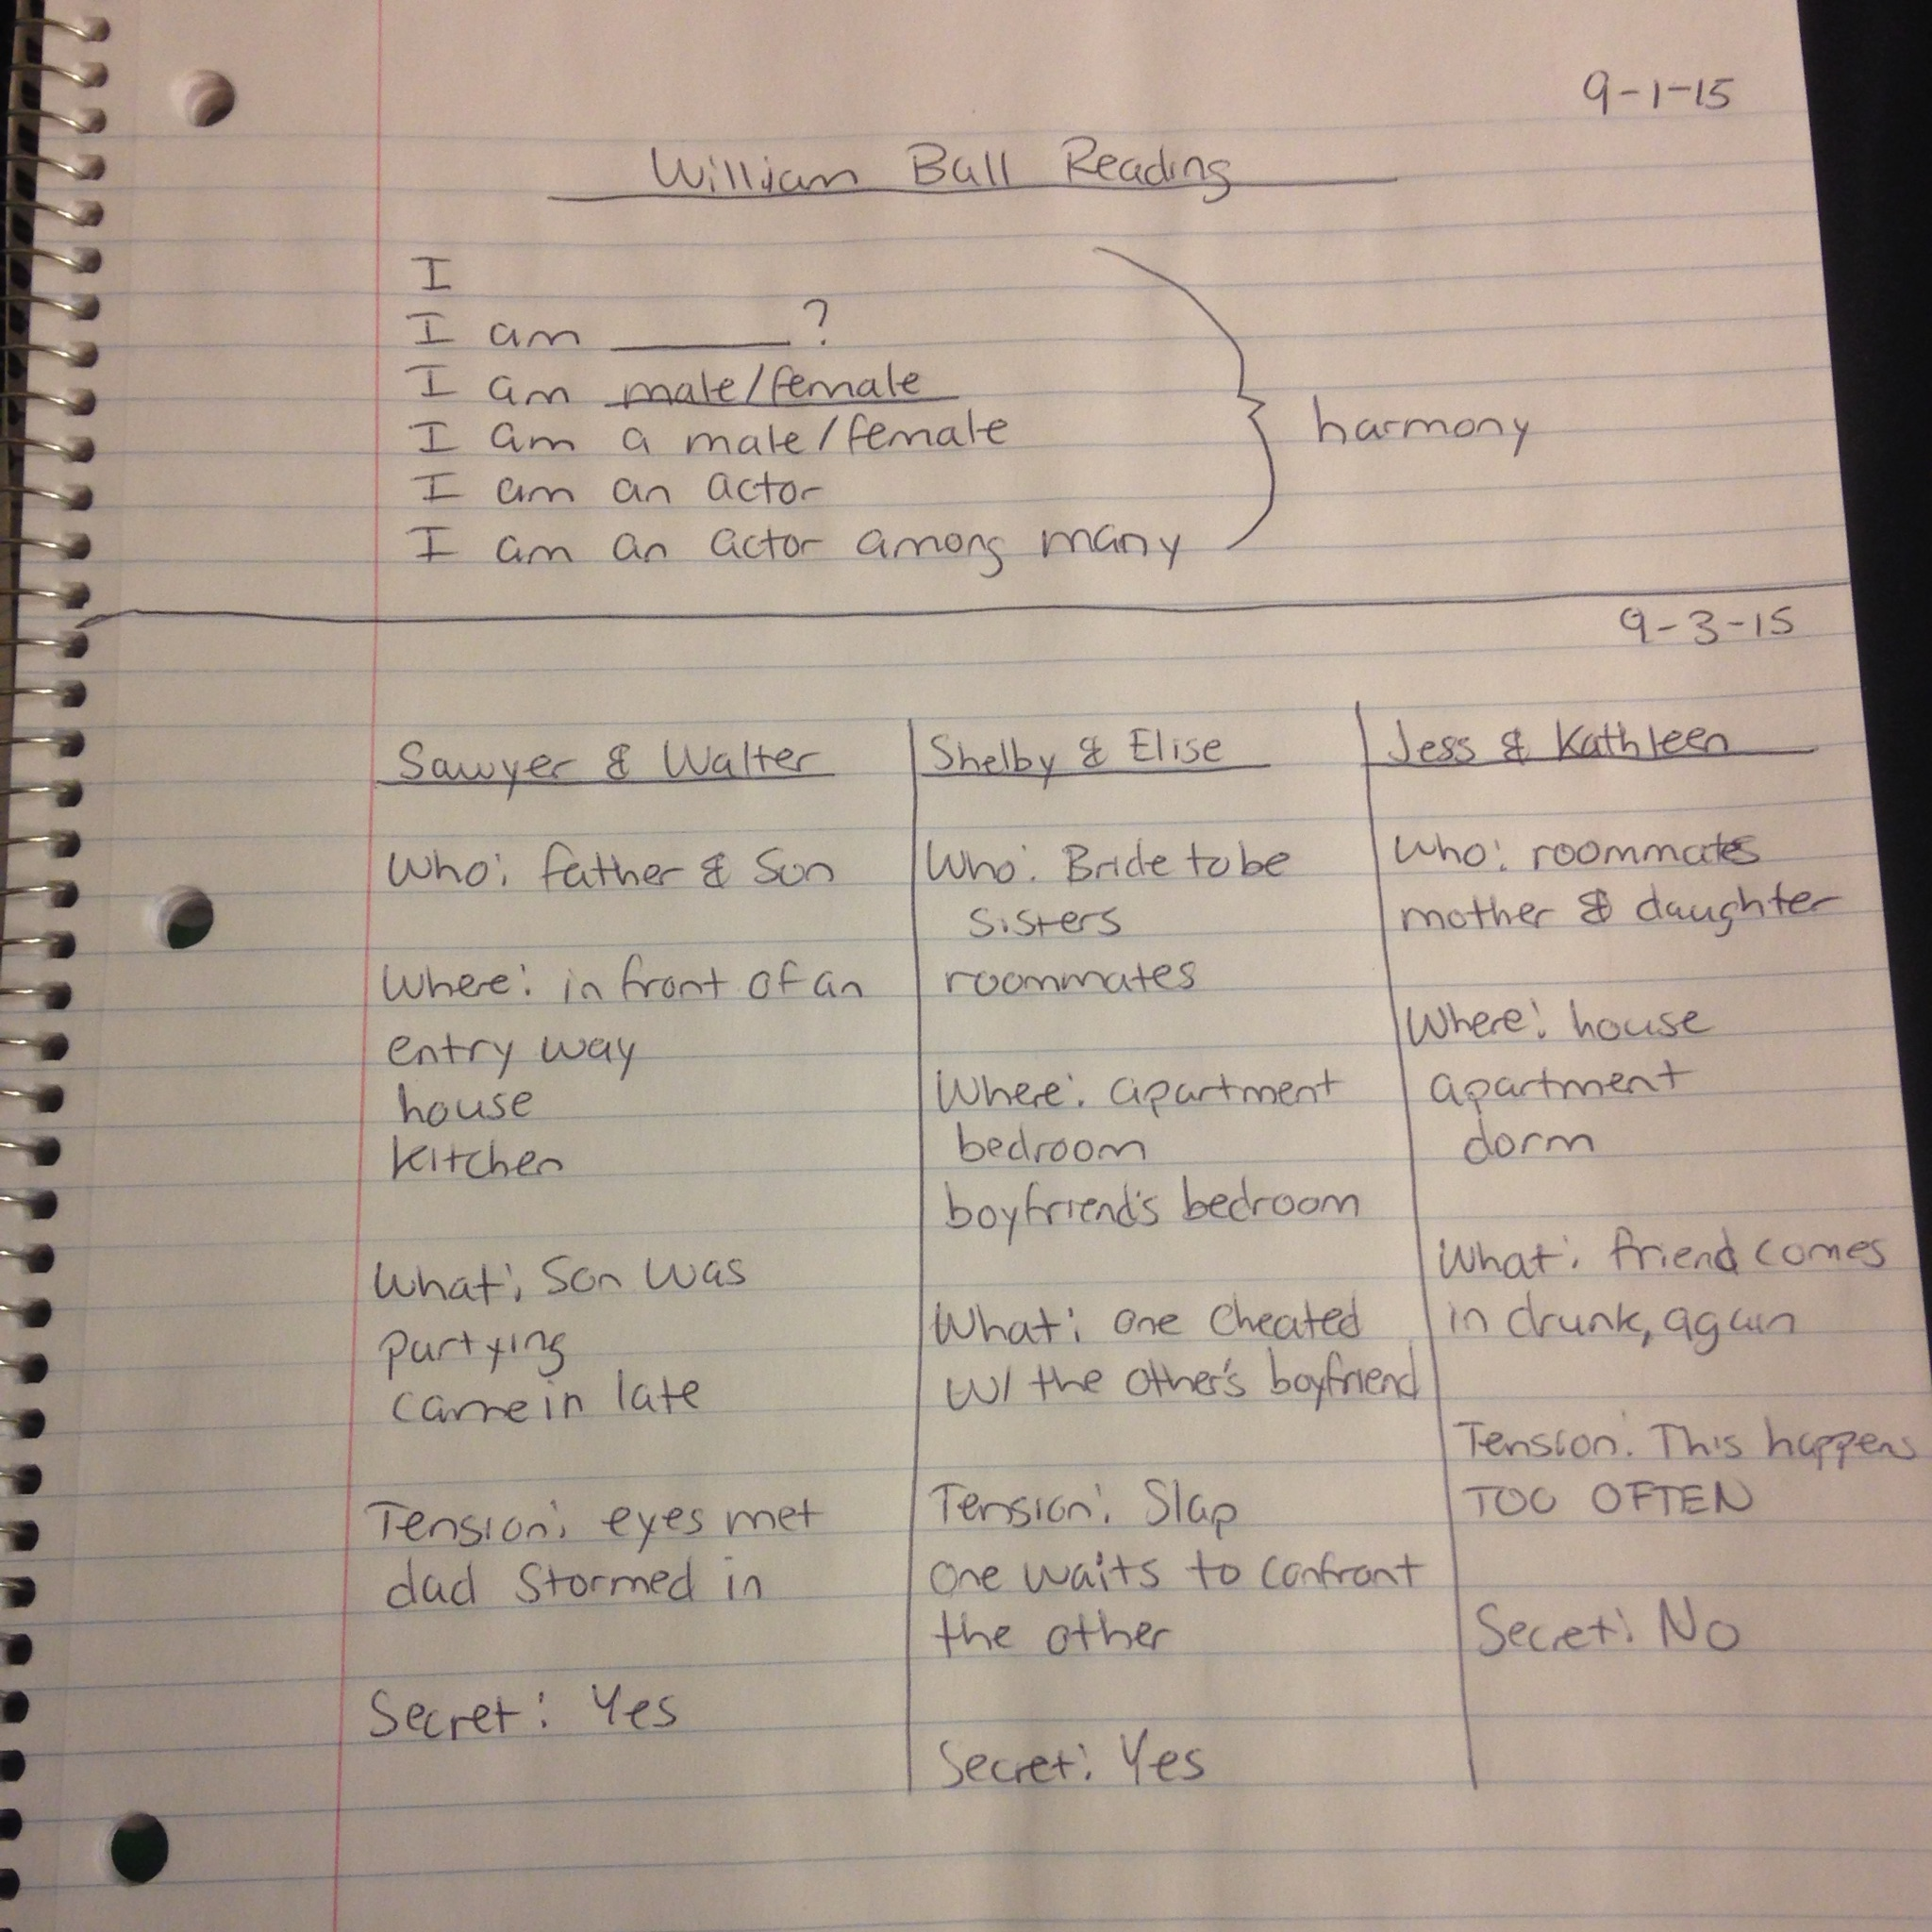 9-1-15
William Ball Reading
I
I am ______?
I am male/female
I am a male/female
I am an actor
I am an actor among many
harmony
9-3-15
Sawyer & Walter
Who: father & son
Where: in front of an
entry way
house
kitchen
What: Son was
partying
came in late
Tension: eyes met
dad stormed in
Secret: Yes
Shelby & Elise
Who: Bride to be
sisters
roommates
Where: apartment
bedroom
boyfriend's bedroom
What: one cheated
w/ the other's boyfriend
Tension: Slap
one waits to confront
the other
Secret: Yes
Jess & Kathleen
Who: roommates
mother & daughter
Where: house
apartment
dorm
What: friend comes
in drunk, again
Tension: This happens
TOO OFTEN
Secret: No